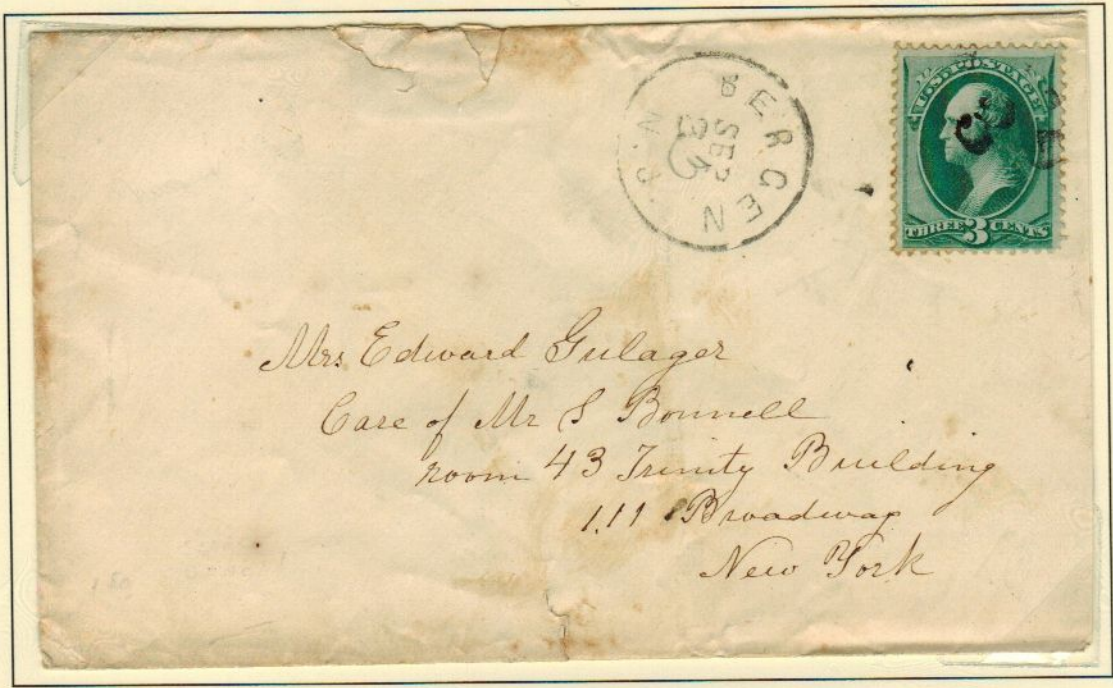 BERGEN
SEP
N. J.
U.S. POSTAGE
THREE 3 CENTS
Mrs Edward Gulager
Care of Mr S Bonnell
room 43 Trinity Building
111 Broadway
New York